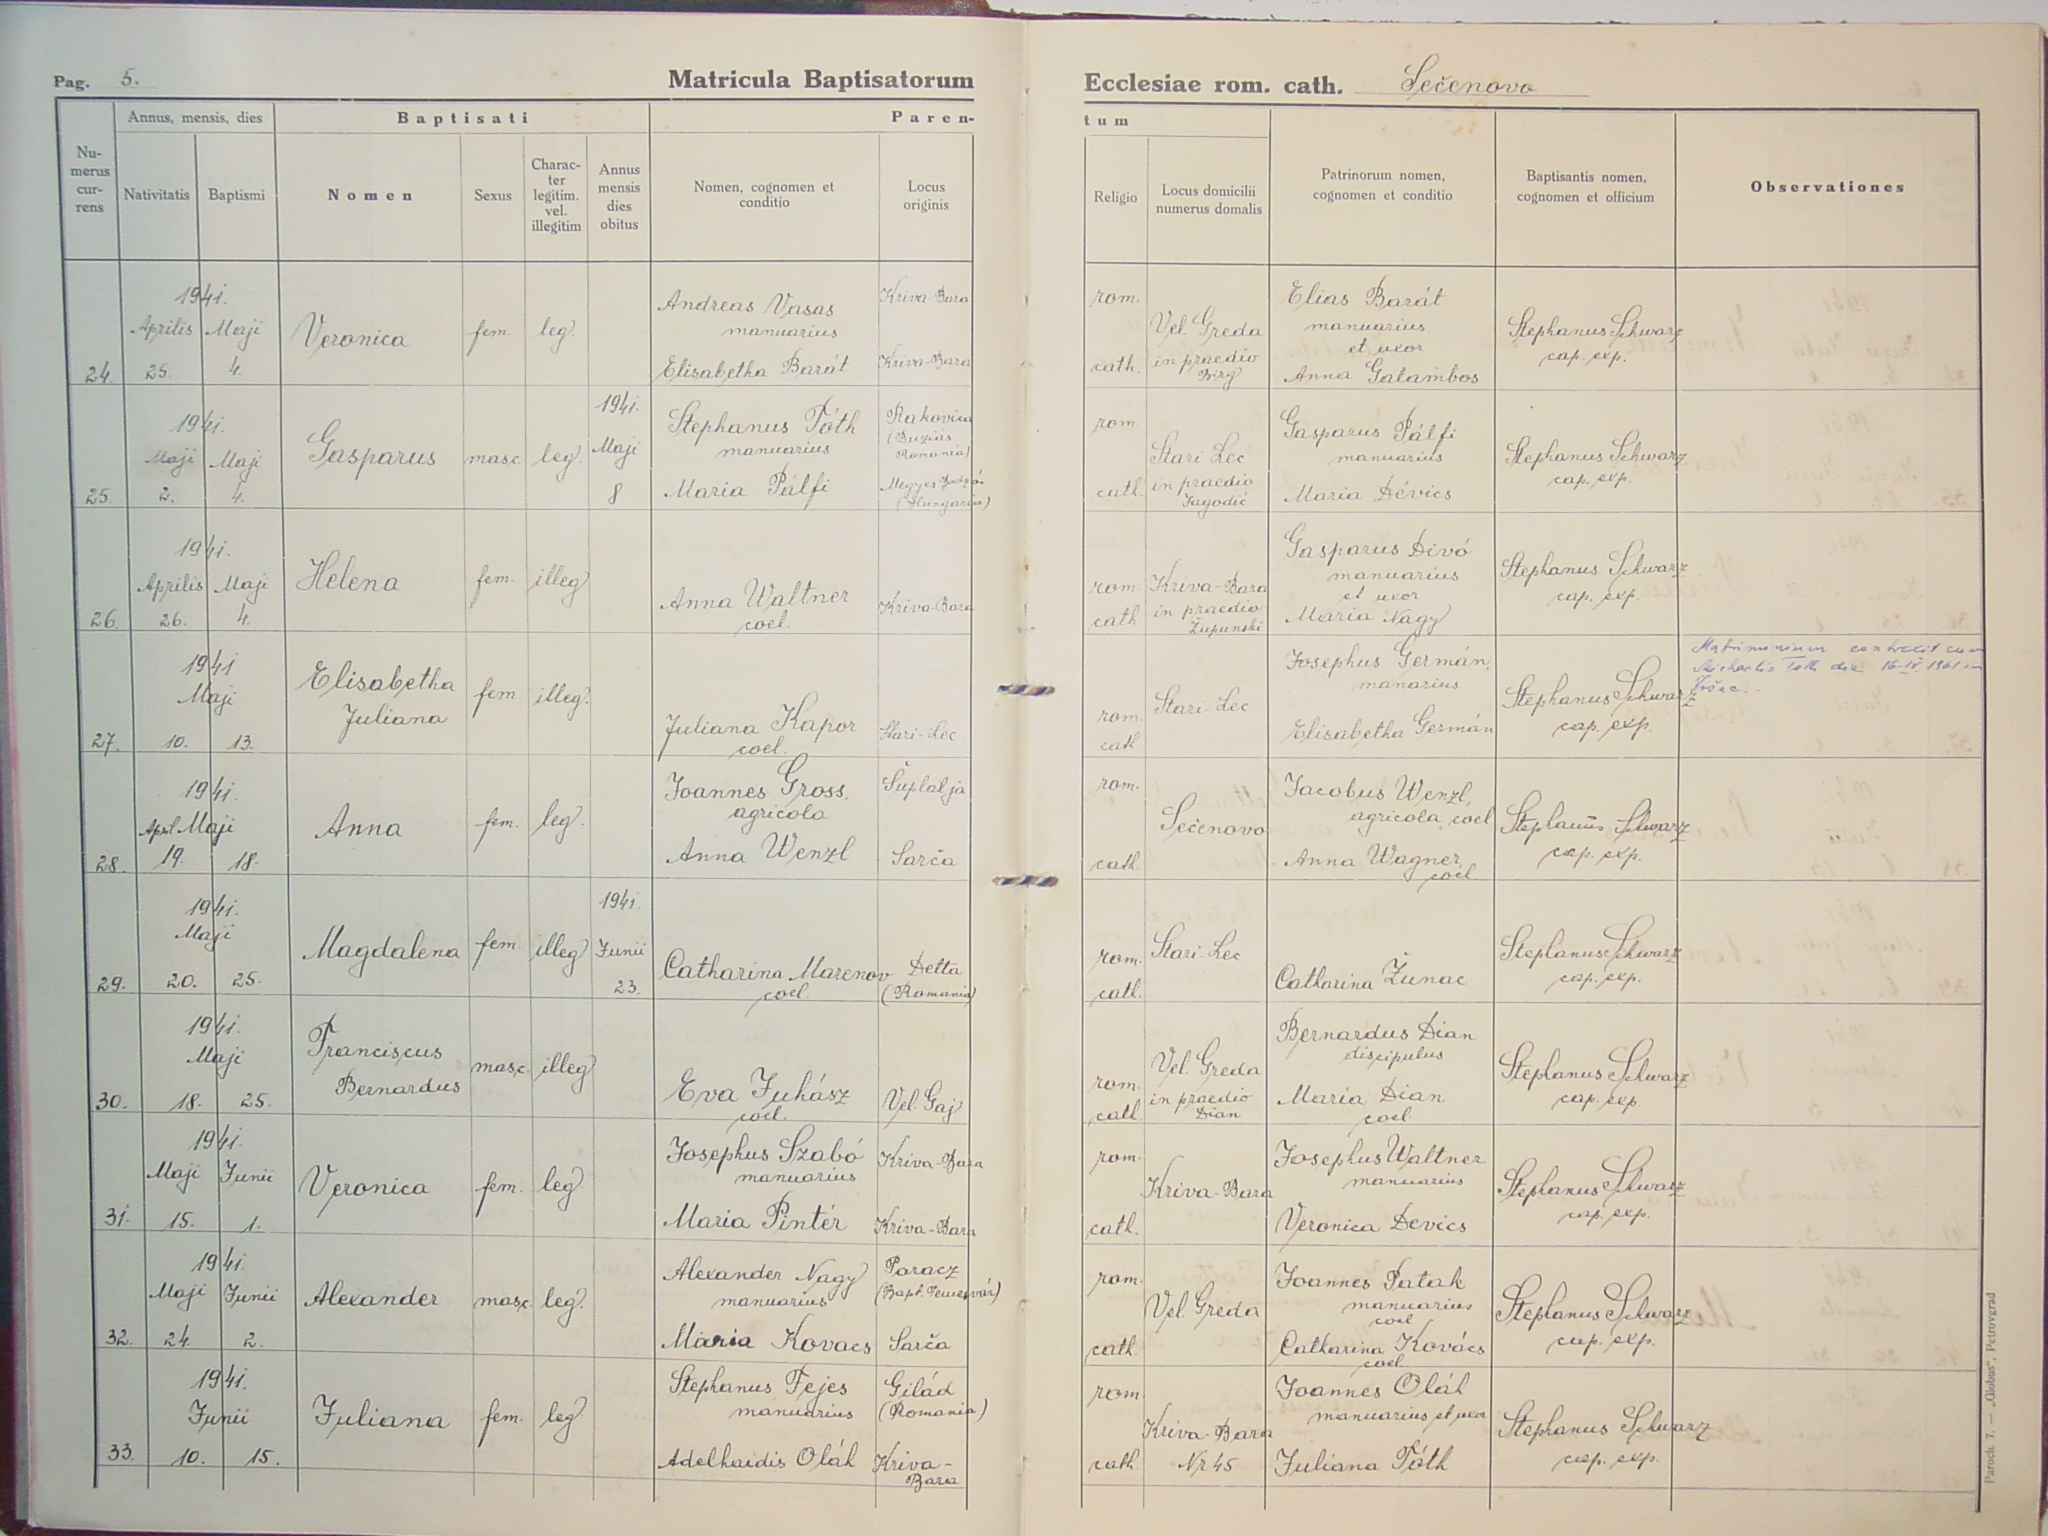 Pag. 5. Matricula Baptisatorum Ecclesiae rom. cath. Sečenovo
Annus, mensis, dies Baptisati Paren-tum
Numerus currens Nativitatis Baptismi Nomen Sexus Character legitim. vel. illegitim Annus mensis dies obitus Nomen, cognomen et conditio Locus originis Religio Locus domicilii numerus domalis Patrinorum nomen, cognomen et conditio Baptisantis nomen, cognomen et officium Observationes
1941. Andreas Vasas Kriva-Bara rom. Elias Barát
Aprilis Maji Veronica fem. leg. manuarius Vel. Greda manuarius Stephanus Schwarz
et uxor cap. exp.
24. 25. 4. Elisabetha Barát Kriva-Bara cath. in praedio Anna Galambos
1941. 1941. Stephanus Tóth Rakovica rom. Gasparus Pálfi
(Buziás
Maji Maji Gasparus masc. leg. Maji manuarius Romania) Stari Lec manuarius Stephanus Schwarz
cap. exp.
25. 2. 4. 8 Maria Pálfi (Hungaria) cath. in praedio Maria Dévics
Jagodić
1941. Gasparus Divó
Aprilis Maji Helena fem. illeg. Anna Waltner Kriva-Bara rom. Kriva-Bara manuarius Stephanus Schwarz
et uxor cap. exp.
26. 26. 4. coel. cath. in praedio Maria Nagy
Župunski
1941 Elisabetha Josephus Germán, Matrimonium contraxit cum
Maji Juliana fem. illeg. Juliana Kapor Stari-Lec rom. Stari-Lec manarius Stephanus Schwarz Michaelis Toth die 16-IV. 1961 in
Vršac.
27. 10. 13. coel. cath. Elisabetha Germán cap. exp.
1941. Joannes Gross, Šuplalja rom. Jacobus Wenzl,
April Maji Anna fem. leg. agricola Sečenovo agricola, coel Stephanus Schwarz
28. 19. 18. Anna Wenzl Sarča cath. Anna Wagner, cap. exp.
coel.
1941. 1941.
Maji Magdalena fem. illeg. Junii Catharina Marenov Detta rom. Stari-Lec Catharina Žunac Stephanus Schwarz
29. 20. 25. 23. coel. (Romania) cath. cap. exp.
1941. Franciscus Bernardus Dian
Maji Bernardus masc. illeg. Eva Juhász Vel. Gaj rom. Vel. Greda discipulus Stephanus Schwarz
30. 18. 25. coel. cath. in praedio Maria Dian cap. exp
Dian coel.
1941. Josephus Szabó Kriva-Bara rom. Josephus Waltner
Maji Junii Veronica fem. leg. manuarius Kriva-Bara manuarius Stephanus Schwarz
31. 15. 1. Maria Pintér Kriva-Bara cath. Veronica Devics cap. exp.
1941. Alexander Nagy Paracz rom. Joannes Patak
Maji Junii Alexander masc. leg. manuarius (Bapt. Temesvár) Vel. Greda manuarius Stephanus Schwarz
coel
32. 24. 2. Maria Kovacs Sarča cath. Catharina Kovács cap. exp.
coel
1941. Stephanus Fejes Gilád rom. Joannes Oláh
Junii Juliana fem. leg. manuarius (Romania) Kriva-Bara manuarius et uxor Stephanus Schwarz
33. 10. 15. Adelhaidis Oláh Kriva-Bara cath. Nr 45 Juliana Tóth cap. exp.
Paroch. 7. — „Globus", Petrovgrad